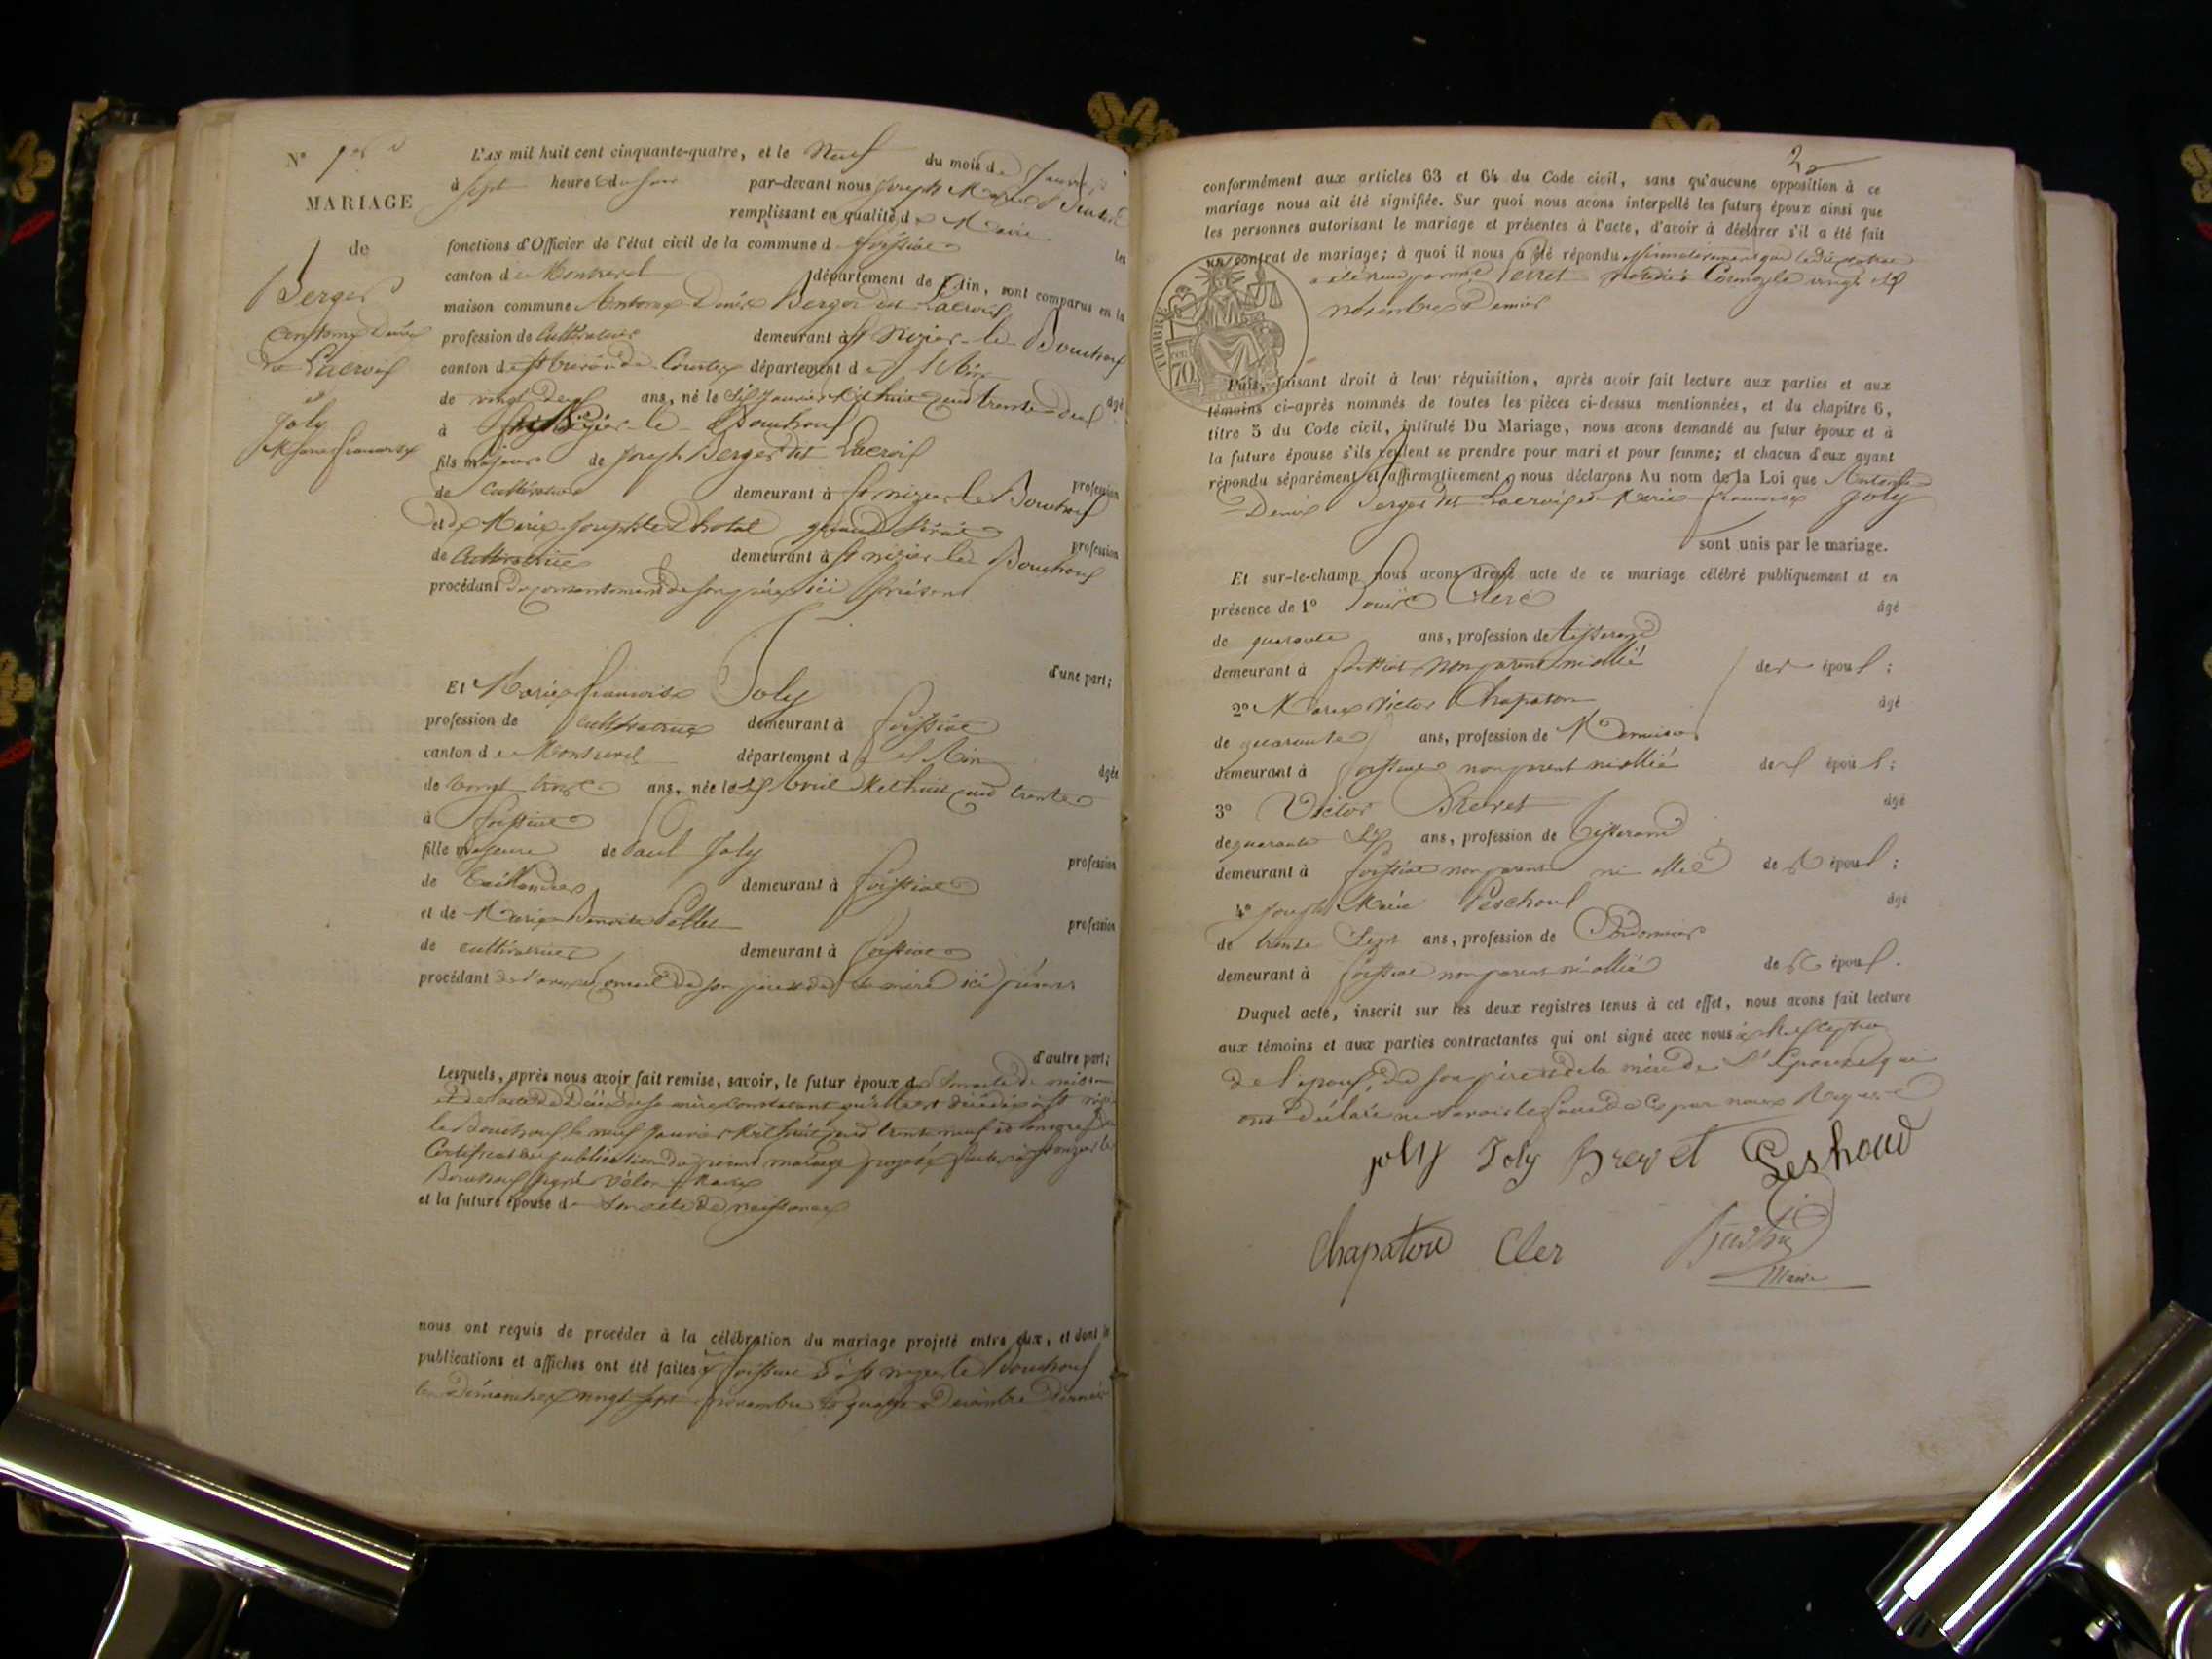 N° 1er
MARIAGE
de
Berger
Antoine Denis
dit Lacroix
et
Joly
Marie françoise
L'AN mil huit cent cinquante-quatre, et le Neuf du mois de Janvier
à sept heures du soir par-devant nous Joseph Marie
remplissant en qualité de Maire les
fonctions d'Officier de l'état civil de la commune d foissiat
canton de Montrevel département de l'Ain, sont comparus en la
maison commune Antoine Denis Berger dit Lacroix
profession de Cultivateur demeurant à St Nizier-le-Bouchoux
canton de St trivier de Courtes département de l'Ain âgé
de vingt deux ans, né le dix janvier Mil huit cent trente deux
à St Nizier-le-Bouchoux
fils majeur de Joseph Berger dit Lacroix profession
de Cultivateur demeurant à St nizier le Bouchoux
et de Marie Josephte profession
de Cultivatrice demeurant à St nizier le Bouchoux
procédant du consentement de son père ici présent
d'une part;
Et Marie françoise Joly
profession de Cultivatrice demeurant à foissiat
canton de Montrevel département de l'Ain âgée
de vingt trois ans, née le avril Mil huit cent trente
à foissiat
fille majeure de Paul Joly profession
de Taillandier demeurant à foissiat
et de Marie Benoite profession
de cultivatrice demeurant à foissiat
procédant de l'avis et conseil de son père et de sa mère ici présents
d'autre part;
Lesquels, après nous avoir fait remise, savoir, le futur époux de son acte de naissance
et de l'acte de Décès de sa mère constatant qu'elle est décédée à St nizier
le Bouchoux le neuf Janvier Mil huit cent trente neuf et enregistré
Certificat de publication du présent mariage projeté faites à St nizier le
Bouchoux signé Maire
et la future épouse de son acte de naissance
nous ont requis de procéder à la célébration du mariage projeté entre eux, et dont les
publications et affiches ont été faites à foissiat et à St nizier le Bouchoux
les Dimanches vingt sept novembre et quatre Décembre Dernier
2
conformément aux articles 63 et 64 du Code civil, sans qu'aucune opposition à ce
mariage nous ait été signifiée. Sur quoi nous avons interpellé les futurs époux ainsi que
les personnes autorisant le mariage et présentes à l'acte, d'avoir à déclarer s'il a été fait
un contrat de mariage; à quoi il nous a été répondu affirmativement que
a été reçu par notaire à vingt
novembre Dernier
TIMBRE
70
Puis, faisant droit à leur réquisition, après avoir fait lecture aux parties et aux
témoins ci-après nommés de toutes les pièces ci-dessus mentionnées, et du chapitre 6,
titre 5 du Code civil, intitulé Du Mariage, nous avons demandé au futur époux et à
la future épouse s'ils veulent se prendre pour mari et pour femme; et chacun d'eux ayant
répondu séparément et affirmativement, nous déclarons Au nom de la Loi que Antoine
Denis Berger dit Lacroix et Marie françoise Joly
sont unis par le mariage.
Et sur-le-champ nous avons dressé acte de ce mariage célébré publiquement et en
présence de 1° Clerc âgé
de quarante ans, profession de tisserand
demeurant à foissiat non parent ni allié des époux;
2° Marie Victor Chapaton âgé
de quarante ans, profession de Menuisier
demeurant à foissiat non parent ni allié des époux;
3° Victor Brevet âgé
de quarante ans, profession de Tisserand
demeurant à foissiat non parent ni allié des époux;
4° Joseph Marie Peschoud âgé
de trente Sept ans, profession de Cordonnier
demeurant à foissiat non parent ni allié des époux.
Duquel acte, inscrit sur les deux registres tenus à cet effet, nous avons fait lecture
aux témoins et aux parties contractantes qui ont signé avec nous à l'exception
de l'époux, de son père et de la mère de l'Epouse qui
ont déclaré ne savoir le faire de ce par nous Requis
joly Joly Brevet Peshoud
Chapaton Cler
Maire